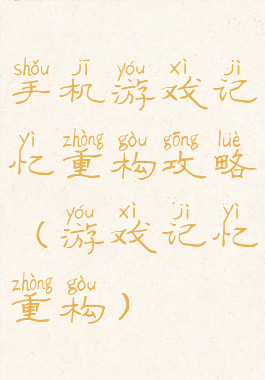 shǒu jī yóu xì jì
手机游戏记
yì zhòng gòu gōng lüè
忆重构攻略
yóu xì jì yì
（游戏记忆
zhòng gòu
重构）